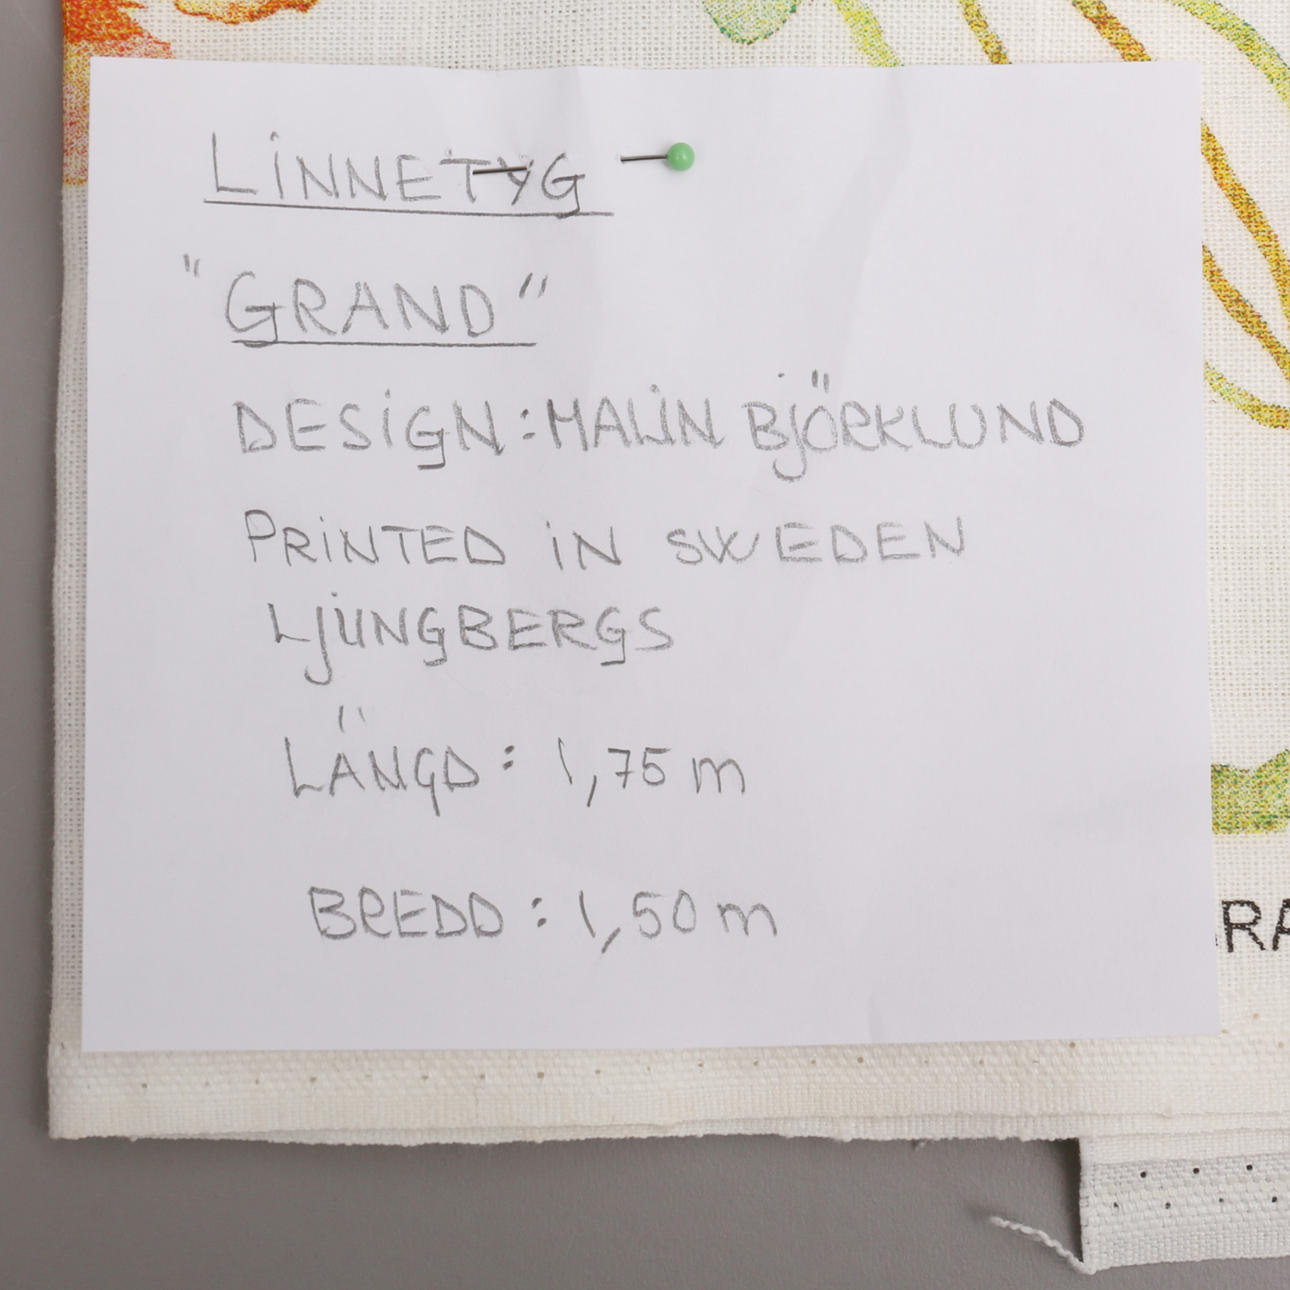 LINNETYG
"GRAND"
DESIGN: MALIN BJÖRKLUND
PRINTED IN SWEDEN
LJUNGBERGS
LÄNGD: 1,75 m
BREDD: 1,50 m
RA